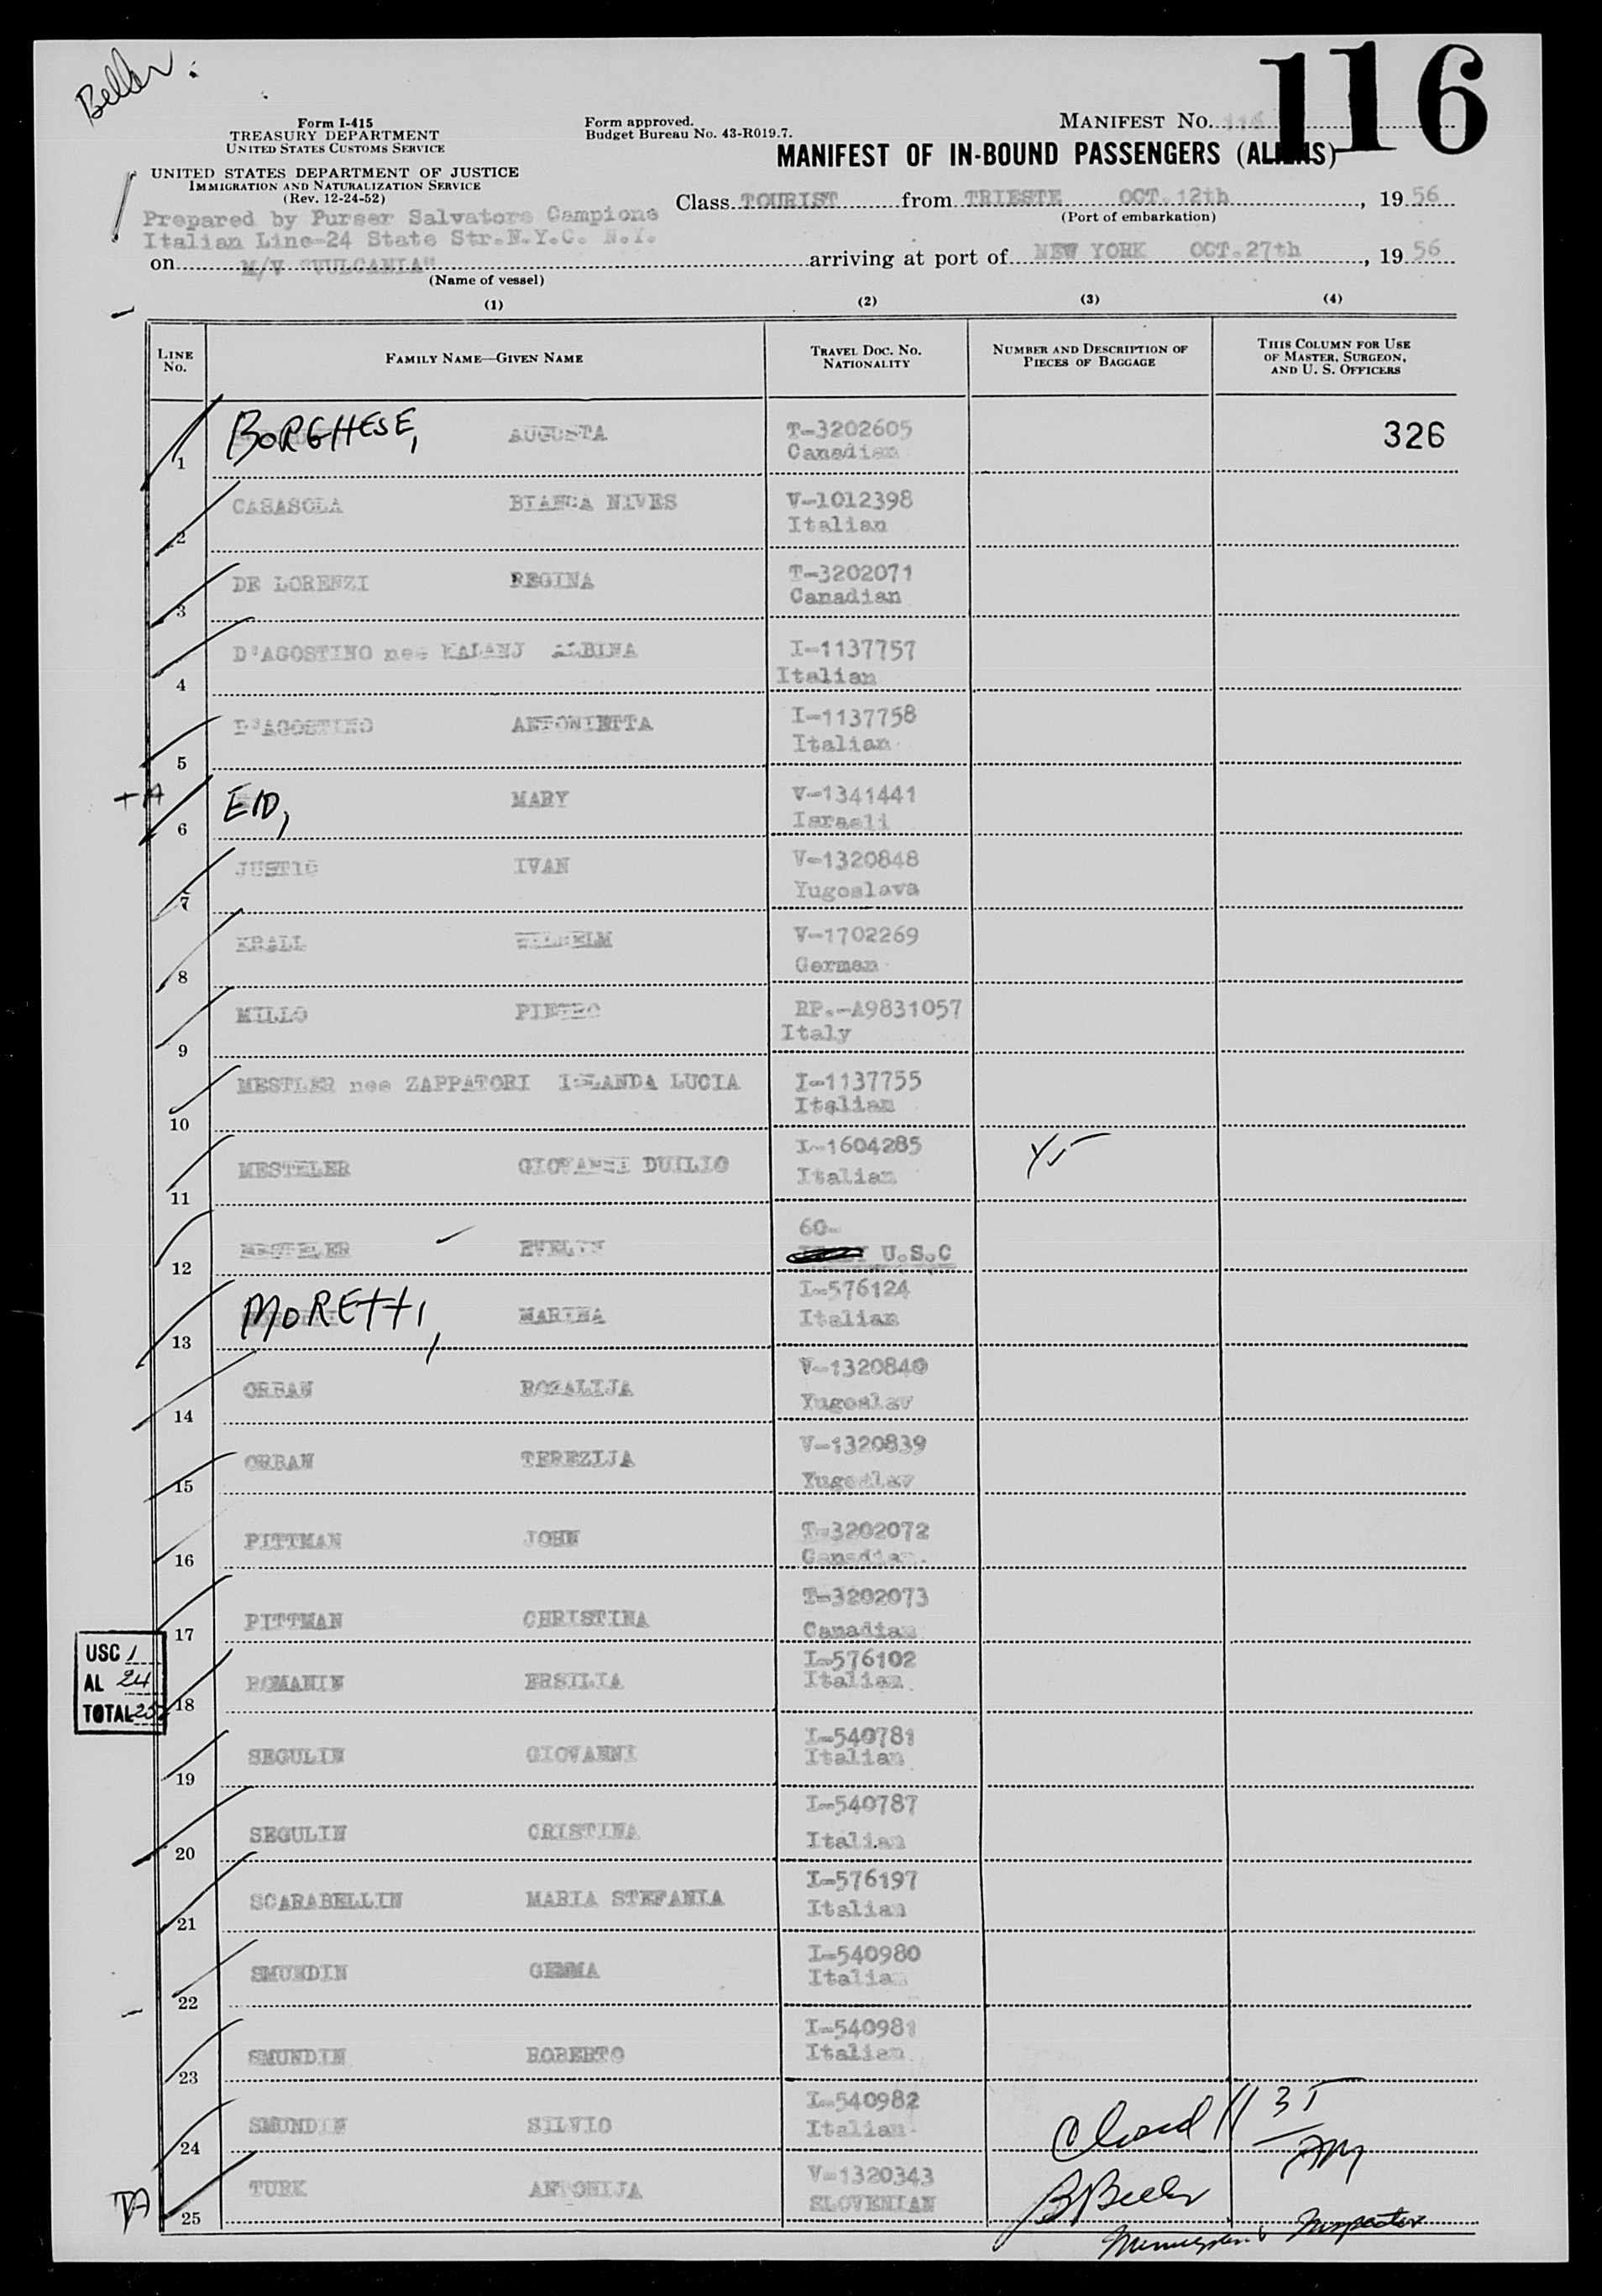 Beller
116
Form I-415
TREASURY DEPARTMENT
UNITED STATES CUSTOMS SERVICE
Form approved.
Budget Bureau No. 43-R019.7.
MANIFEST No. 116
MANIFEST OF IN-BOUND PASSENGERS (ALIENS)
UNITED STATES DEPARTMENT OF JUSTICE
IMMIGRATION AND NATURALIZATION SERVICE
(Rev. 12-24-52)
Class TOURIST from TRIESTE OCT.12th, 1956
(Port of embarkation)
Prepared by Purser Salvatore Campione
Italian Line-24 State Str.N.Y.C. N.Y.
on M/V "VULCANIA" arriving at port of NEW YORK OCT.27th, 1956
(Name of vessel)
(1) (2) (3) (4)
LINE No. FAMILY NAME—GIVEN NAME TRAVEL DOC. No. NATIONALITY NUMBER AND DESCRIPTION OF PIECES OF BAGGAGE THIS COLUMN FOR USE OF MASTER, SURGEON, AND U. S. OFFICERS
1 BORGHESE, AUGUSTA T-3202605 326
Canadian
2 CASASOLA BIANCA NIVES V-1012398
Italian
3 DE LORENZI REGINA T-3202071
Canadian
4 D'AGOSTINO nee KALANJ ALBINA I-1137757
Italian
5 D'AGOSTINO ANTONIETTA I-1137758
Italian
6 EID, MARY V-1341441
Israeli
7 JUSTIC IVAN V-1320848
Yugoslava
8 KRALL WILHELM V-1702269
German
9 MILLO PIETRO RP.-A9831057
Italy
10 MESTLER nee ZAPPATORI IOLANDA LUCIA I-1137755
Italian
11 MESTELER GIOVANNI DUILIO I-1604285
Italian
12 MESTELER EVELYN 60-
U.S.C
13 MORETTI, MARINA I-576124
Italian
14 ORBAN ROZALIJA V-1320840
Yugoslav
15 ORBAN TEREZIJA V-1320839
Yugoslav
16 PITTMAN JOHN T-3202072
Canadian.
17 PITTMAN CHRISTINA T-3202073
Canadian
USC 1
AL 24
TOTAL 25
18 ROMANIN ERSILIA I-576102
Italian
19 SEGULIN GIOVANNI I-540781
Italian
20 SEGULIN CRISTINA I-540787
Italian
21 SCARABELLIN MARIA STEFANIA I-576197
Italian
22 SMUNDIN GEMMA I-540980
Italian
23 SMUNDIN ROBERTO I-540981
Italian
24 SMUNDIN SILVIO I-540982
Italian
Closed 11 35 AM
25 TURK ANTONIJA V-1320343
SLOVENIAN
B Beller
Immigrant Inspector